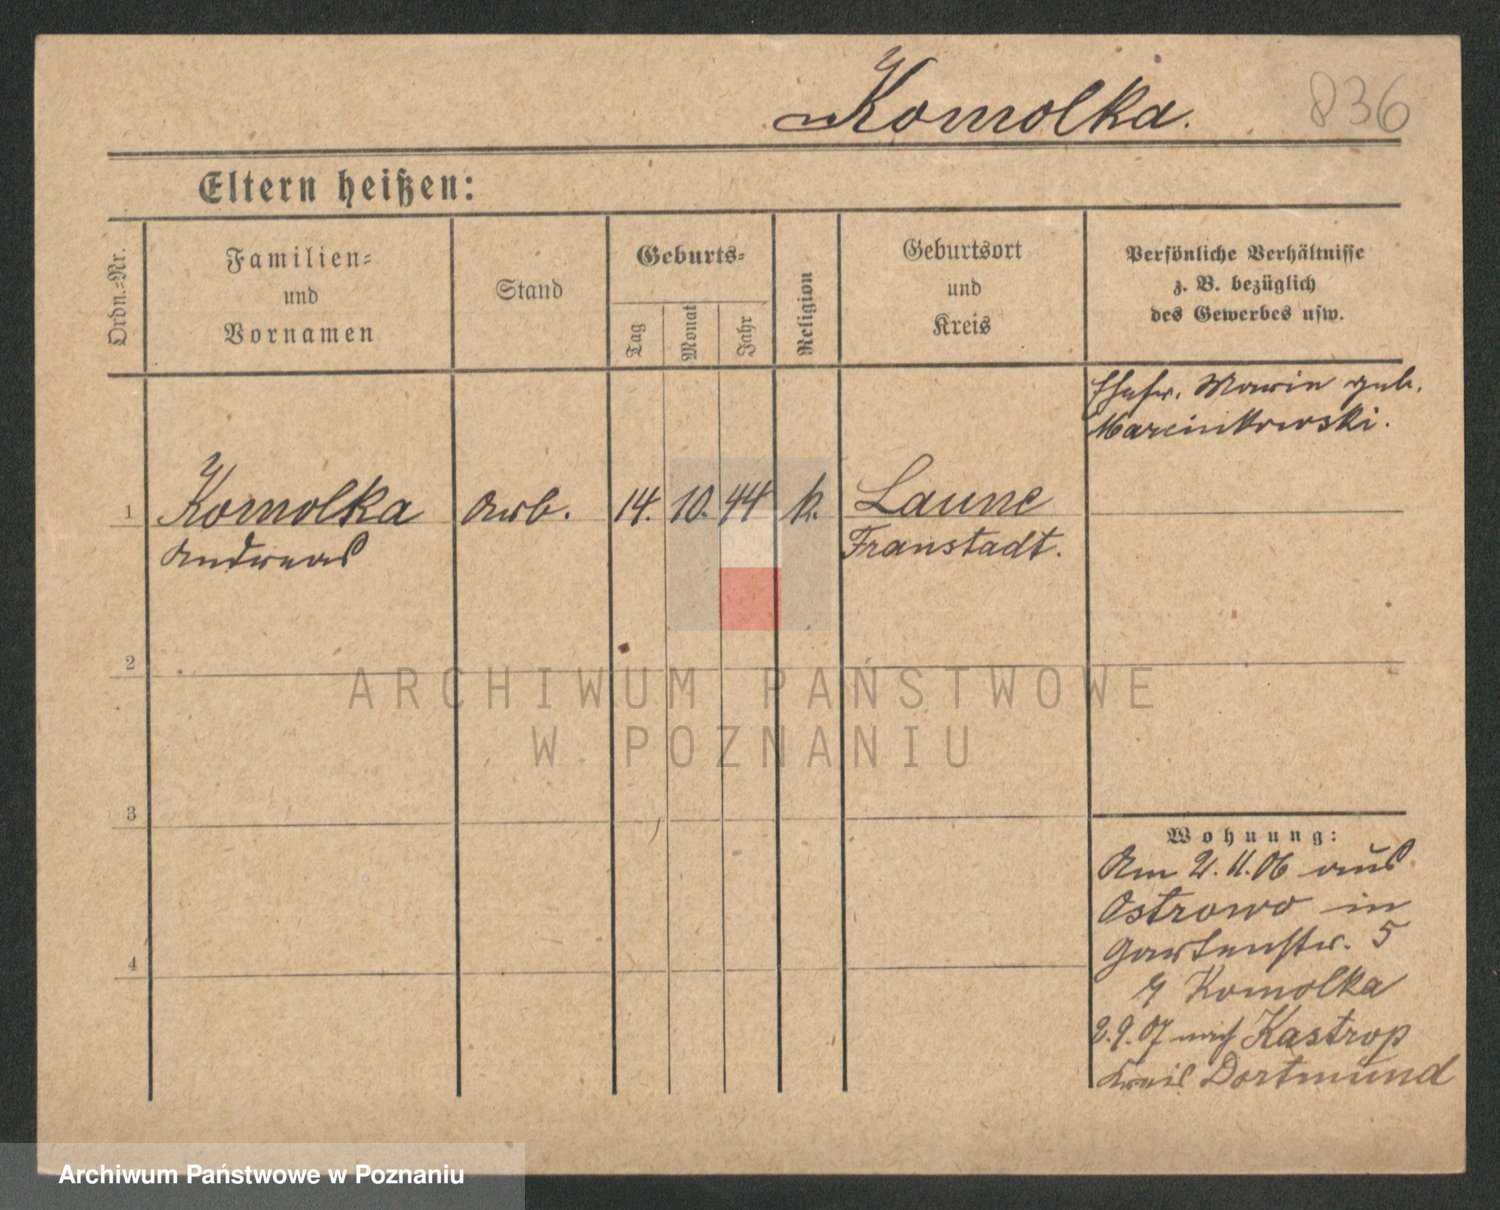 Komolka. 836
Eltern heißen:
Ordn.-Nr.
Familien-
und
Vornamen
Stand
Geburts-
Tag
Monat
Jahr
Religion
Geburtsort
und
Kreis
Persönliche Verhältnisse
z. B. bezüglich
des Gewerbes usw.
Ehefr. Marie geb.
Marcinkowski.
1 Komolka Arb. 14. 10. 44 k. Laune
Andreas Fraustadt.
2
ARCHIWUM PAŃSTWOWE
W POZNANIU
3
Wohnung:
Am 2.11.06 aus
Ostrowo in
Gartenstr. 5
4
Komolka
2.9.07 nach Kastrop
Kreis Dortmund
Archiwum Państwowe w Poznaniu